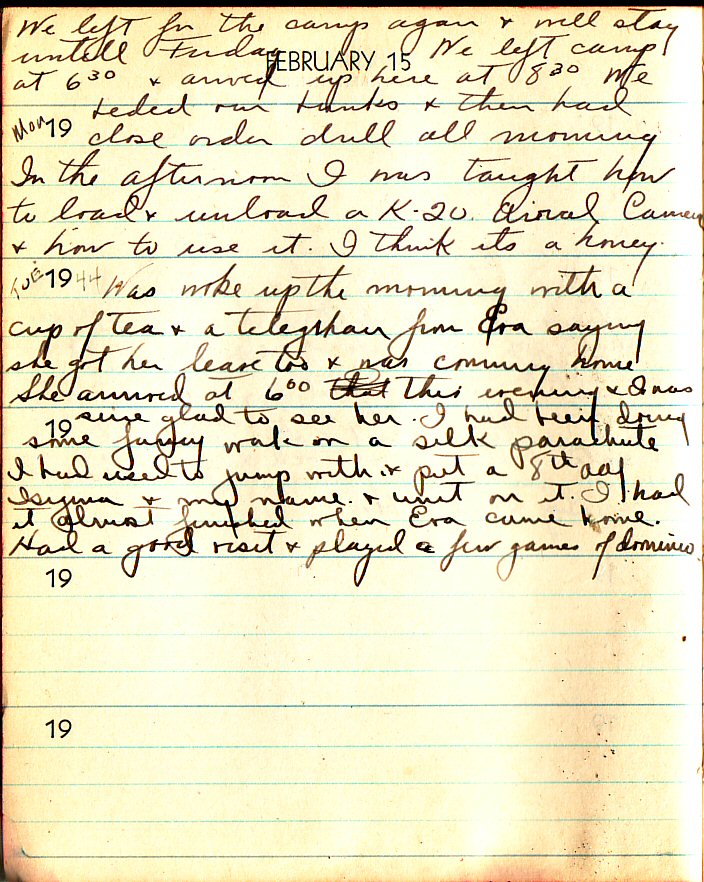 We left for the camp again & will stay
untill Friday We left camp
FEBRUARY 15
at 6 30 & arrived up here at 8 30 We
seded our bunks & then had
Mon 19 close order drill all morning
In the afternoon I was taught how
to load & unload a K-20. Airial Camera
& how to use it. I think its a honey.
TUE 19 44 Was woke up the morning with a
cup of tea & a telegrham from Eva saying
she got her leave too & was comming home
She arrived at 6 00 that this evening & I was
19 sure glad to see her. I had been doing
some fancy work on a silk parachute
I had used to jump with & put a 8th aaf
Isigma & my name & unit on it. I had
it almost finished when Eva came home.
Had a good visit & played a few games of domino
19
19